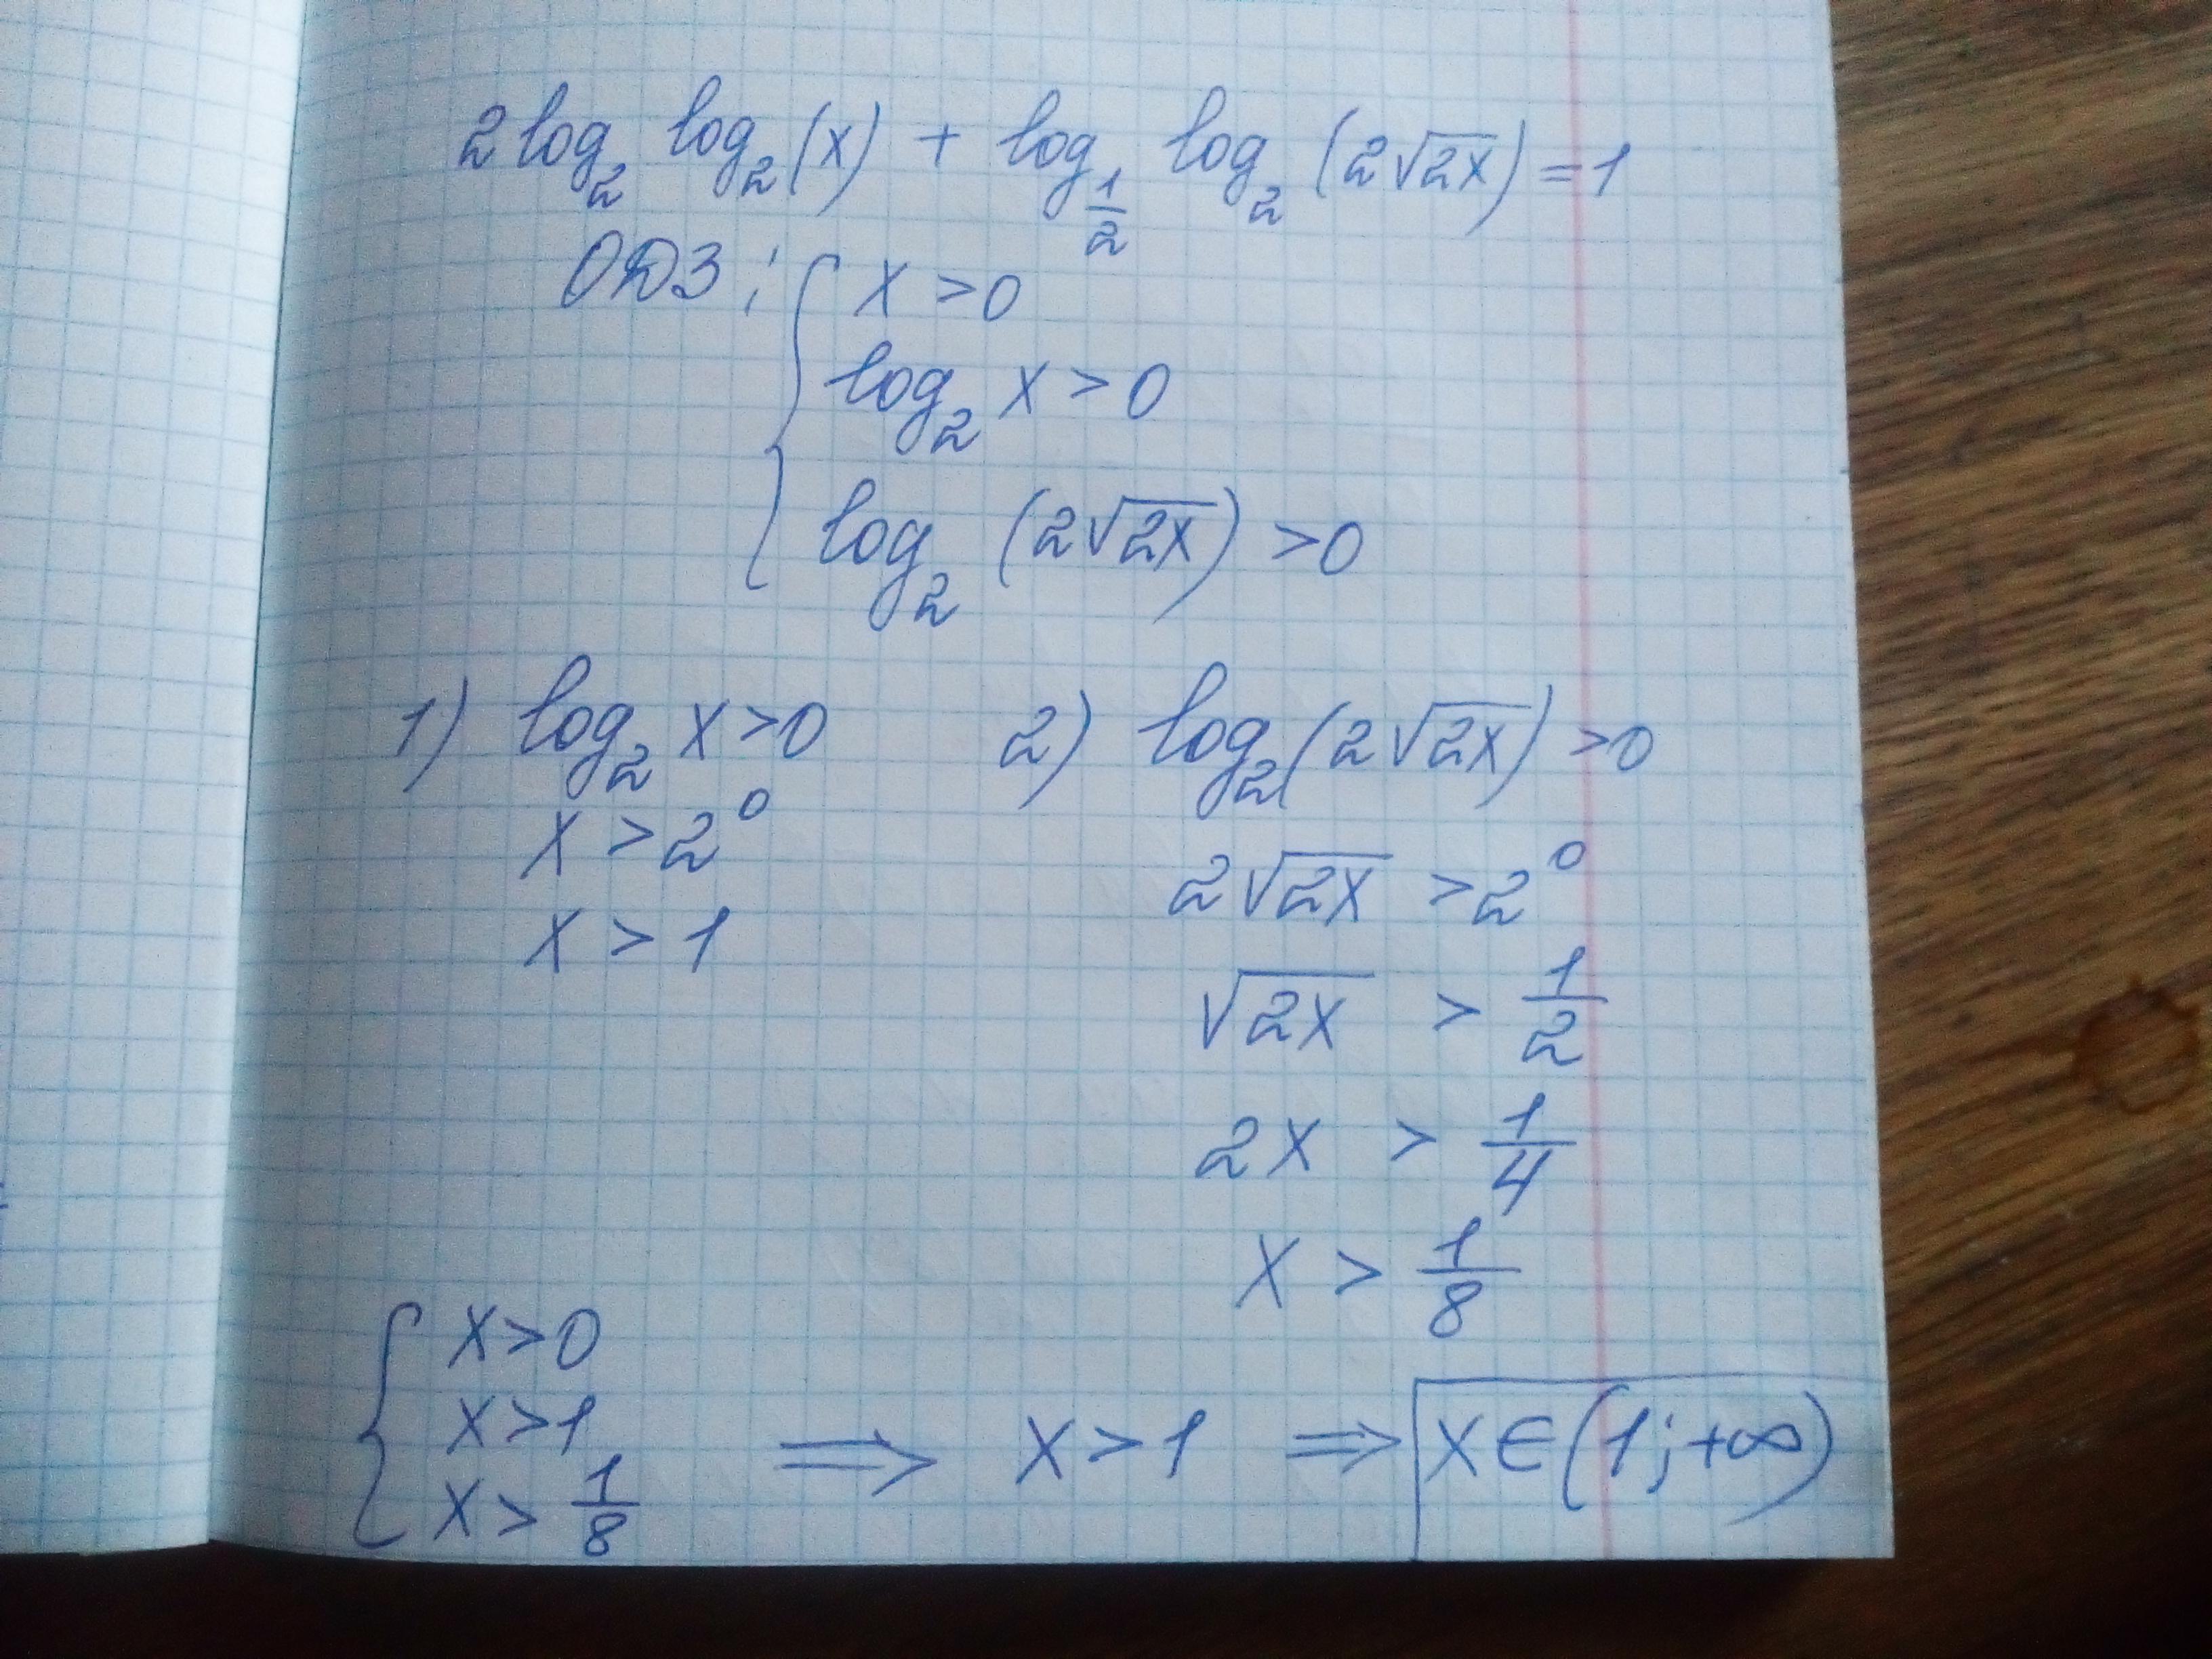 2 log₂ log₂ (x) + log_{1/2} log₂ (2√(2x)) = 1
ОДЗ: { x > 0
log₂ x > 0
log₂ (2√(2x)) > 0
1) log₂ x > 0 2) log₂ (2√(2x)) > 0
x > 2⁰ 2√(2x) > 2⁰
x > 1 √(2x) > 1/2
2x > 1/4
x > 1/8
{ x > 0
x > 1 ⟹ x > 1 ⟹ x ∈ (1; +∞)
x > 1/8